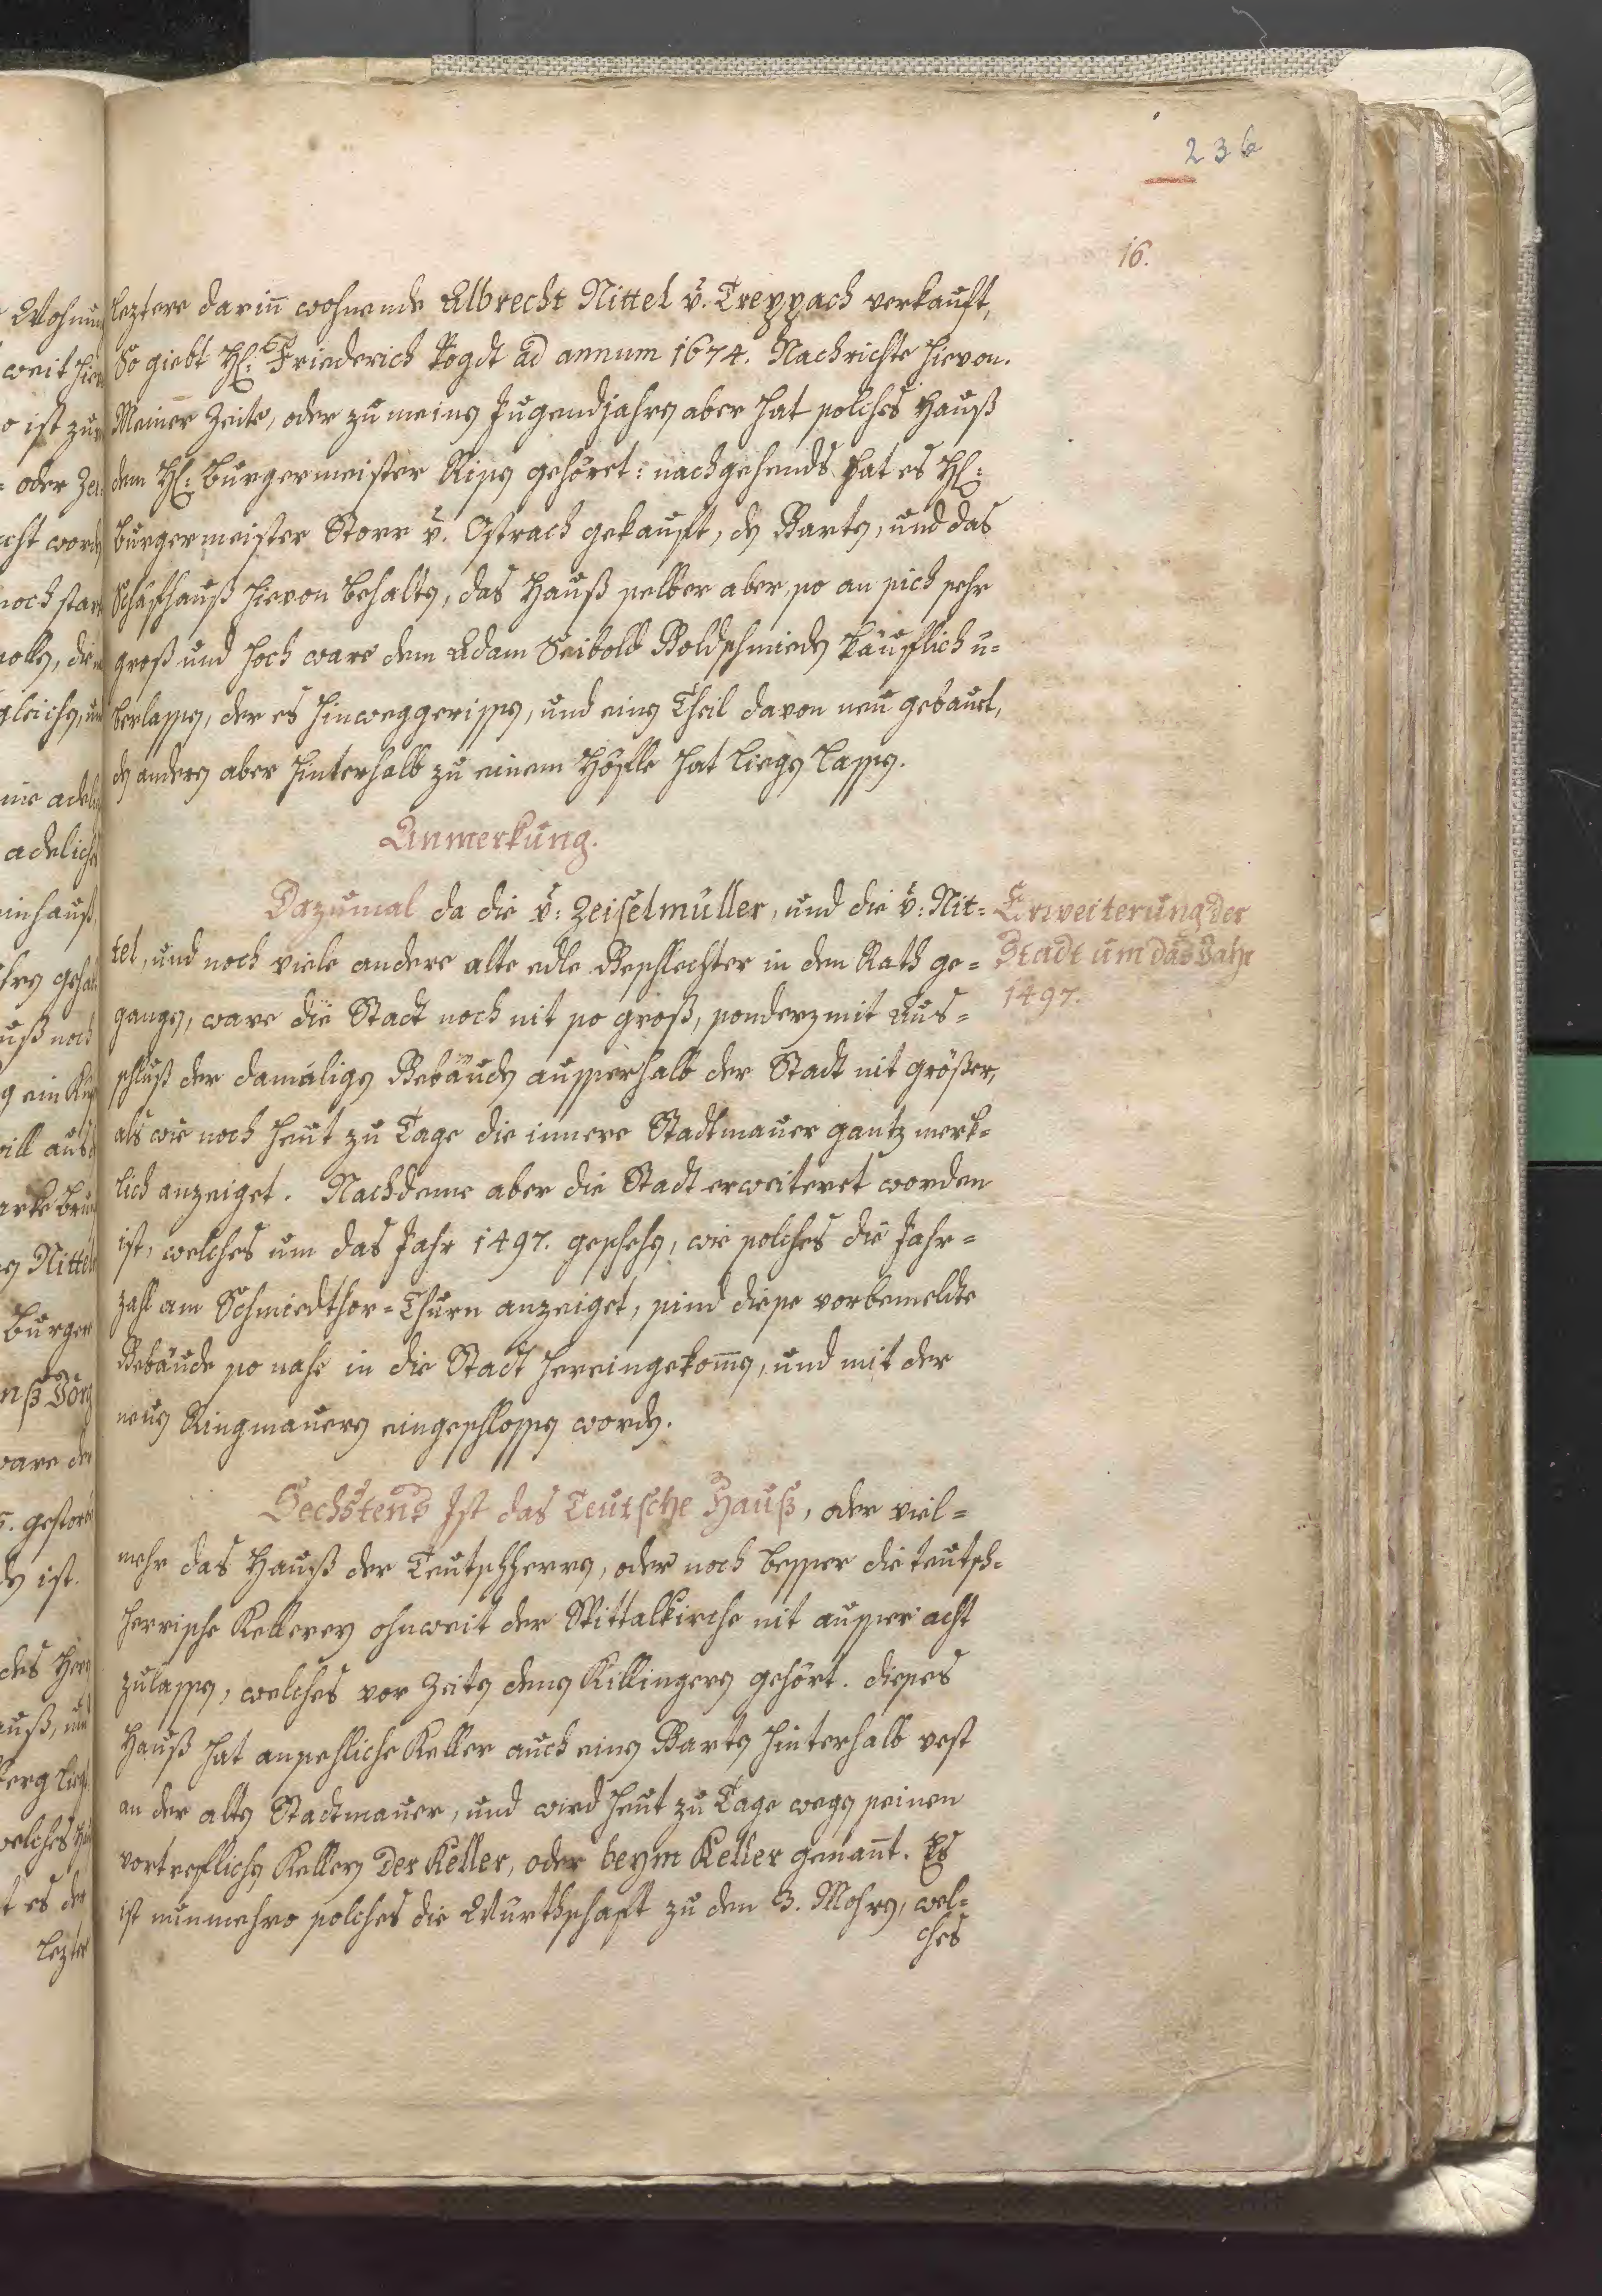 236
16.
leztere dariñ wohnende Albrecht Nittel v. Treppach verkauft,
So giebt H: Friederich Vogdt ad annum 1674. Nachrichte hievon.
Meiner Zeite, oder zu meinen Jugendjahren aber hat solches Hauß
dem H: Burgermeister Risen gehöret: nachgehends hat es H:
Burgermeister Storr v. Ostrach gekauft, den Garten, und das
Schafhauß hievon behalten, das Hauß selber aber, so an sich sehr
groß und hoch ware dem Adam Seibold Goldschmieden käuflich ü=
berlassen, der es hinweggerissen, und einen Theil davon neu gebauet,
den andern aber hinterhalb zu einem Höfle hat liegen lassen.
Anmerkung.
Dazumal da die v: Zeiselmüller, und die v: Nit=
tel, und noch viele andere alte edle Geschlechter in den Rath ge=
gangen, ware die Stadt noch nit so groß, sondern mit Aus=
schluß der damaligen Gebäuden ausserhalb der Stadt nit größer,
als wie noch heut zu Tage die innere Stadtmauer gantz merk=
lich anzeiget. Nachdeme aber die Stadt erweiteret worden
ist, welches um das Jahr 1497. geschehen, wie solches die Jahr=
zahl am Schmiedthor=Thurn anzeiget, sind diese vorbemeldte
Gebäude so nahe in die Stadt hereingekomen, und mit der
neuen Ringmauern eingeschlossen worden.
Erweiterung der
Stadt um das Jahr
1497.
Sechstens Ist das Teutsche Hauß, oder viel=
mehr das Hauß der Teutschherrn, oder noch besser die teutsch=
herrische Kellerey ohnweit der Spittalkirche nit ausser acht
zulassen, welches vor Zeiten denen Killingern gehört. dieses
Hauß hat ansehliche Keller auch einen Garten hinterhalb vest
an der alten Stadtmauer, und wird heut zu Tage wegen seinen
vortreflichen Kellern Der Keller, oder beym Keller genañt. Es
ist nunmehro solches die Würthschaft zu den 3. Mohren, wel=
ches